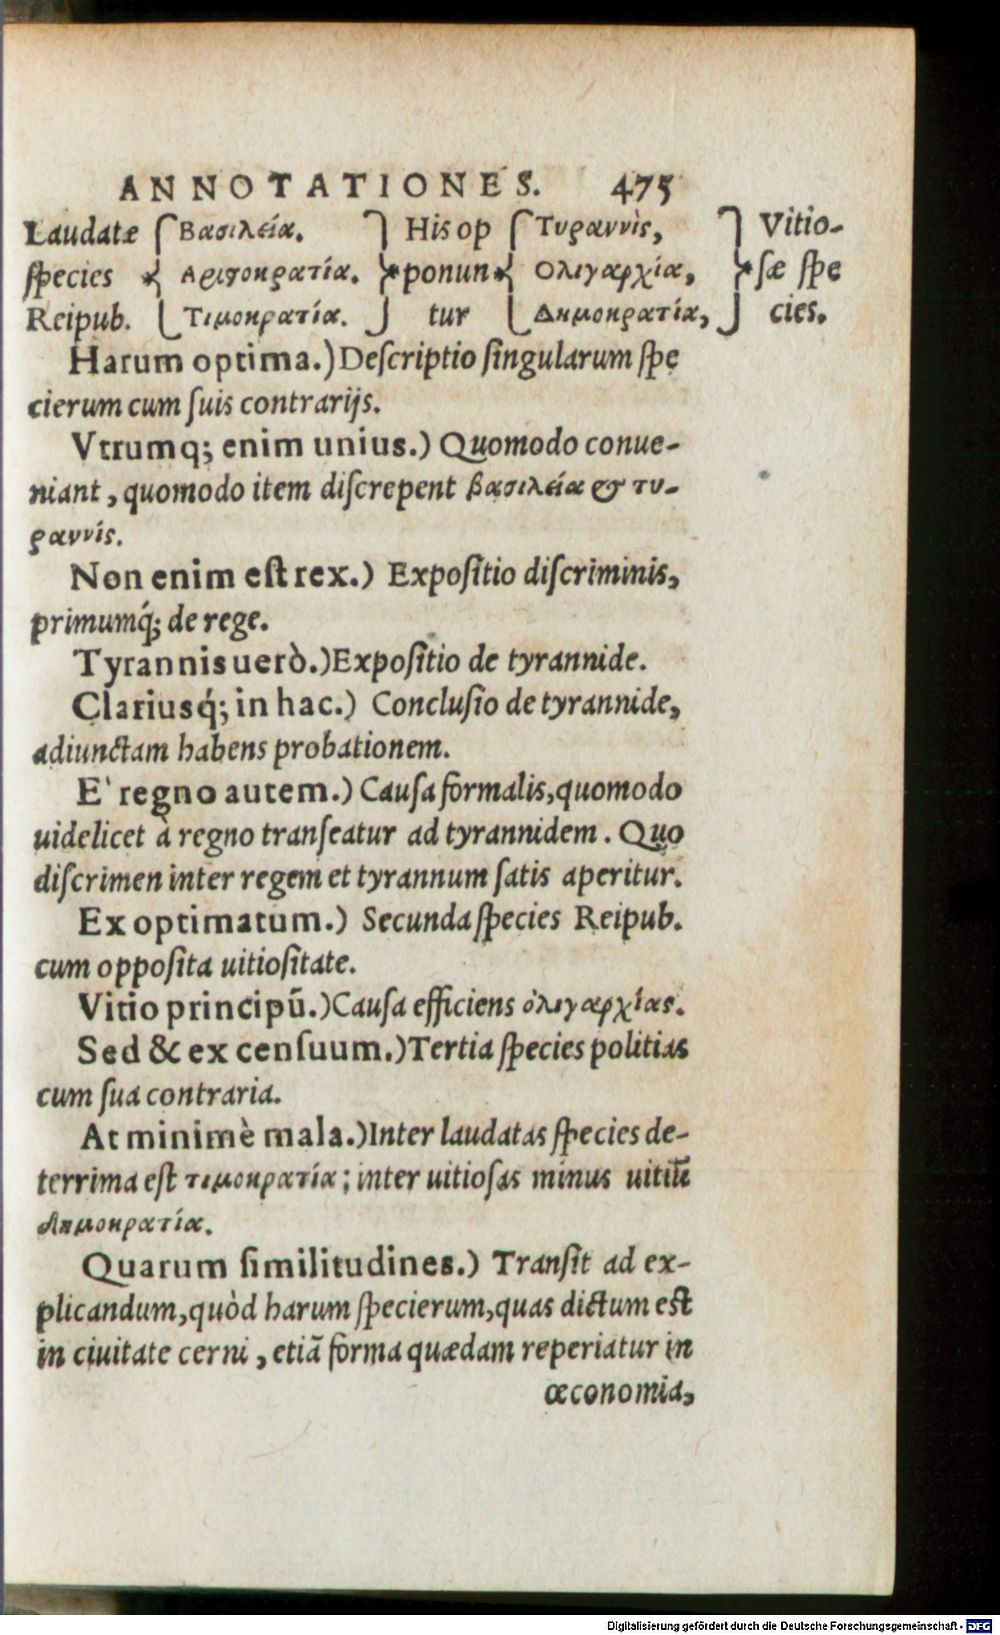 ANNOTATIONES. 475
Laudatæ { Βασιλεία. } His op { Τυραννὶς, } Vitio-
ſpecies { Αριστοκρατία. } ponun { Ολιγαρχία, } ſæ ſpe
Reipub. { Τιμοκρατία. } tur { Δημοκρατία, } cies.
Harum optima.) Deſcriptio ſingularum ſpe
cierum cum ſuis contrarijs.
Vtrumq; enim unius.) Quomodo conue-
niant, quomodo item diſcrepent βασιλεία & τυ-
ραννίς.
Non enim eſt rex.) Expoſitio diſcriminis,
primumq́; de rege.
Tyrannis uerò.) Expoſitio de tyrannide.
Clariusq́; in hac.) Concluſio de tyrannide,
adiunctam habens probationem.
E' regno autem.) Cauſa formalis, quomodo
uidelicet à regno tranſeatur ad tyrannidem. Quo
diſcrimen inter regem et tyrannum ſatis aperitur.
Ex optimatum.) Secunda ſpecies Reipub.
cum oppoſita uitioſitate.
Vitio principũ.) Cauſa efficiens ὀλιγαρχίας.
Sed & ex cenſuum.) Tertia ſpecies politias
cum ſua contraria.
At minimè mala.) Inter laudatas ſpecies de-
terrima eſt τιμοκρατία; inter uitioſas minus uitiũ
δημοκρατία.
Quarum ſimilitudines.) Tranſit ad ex-
plicandum, quòd harum ſpecierum, quas dictum eſt
in ciuitate cerni, etiã forma quædam reperiatur in
œconomia,
Digitalisierung gefördert durch die Deutsche Forschungsgemeinschaft - DFG